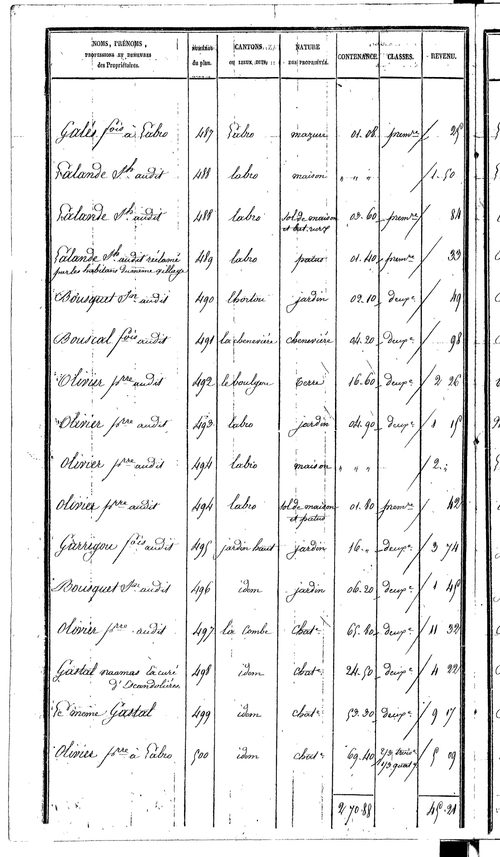 NOMS, PRÉNOMS, PROFESSIONS ET DEMEURES des Propriétaires. NUMÉROS du plan. CANTONS OU LIEUX DITS. NATURE DES PROPRIÉTÉS. CONTENANCE. CLASSES. REVENU.
Galés fois à Labro 487 Labro mazure 01.08 premre 25
Lalande Jh audit 488 labro maison " " " 1.50
Lalande Jh audit 488 labro sol de maison 03.60 premre 84
Lalande Jh audit réclamé 489 labro patus 01.40 premre 33
par les habitans du même village
Bousquet audit 490 lhortou jardin 02.10 deuxe 49
Bouscal fois audit 491 la chenevière chenevière 04.20 deuxe 98
Olivier prre audit 492 le boulgou terre 16.60 deuxe 2 26
Olivier prre audit 493 labro jardin 04.90 deuxe 1 15
Olivier prre audit 494 labro maison " " " 2 "
Olivier prre audit 494 labro sol de maison 01.80 premre 42
et patus
Garrigou fois audit 495 jardin haut jardin 16 " deuxe 3 74
Bousquet audit 496 idem jardin 06.20 deuxe 1 45
Olivier prre audit 497 la Combe chate 65.80 deuxe 11 32
Gastal curé 498 idem chate 24.50 deuxe 4 22
d'Escandolières
Le même Gastal 499 idem chate 53.30 deuxe 9 17
Olivier prre à Labro 500 idem chate 69.40 5 09
2.70.88 45.21